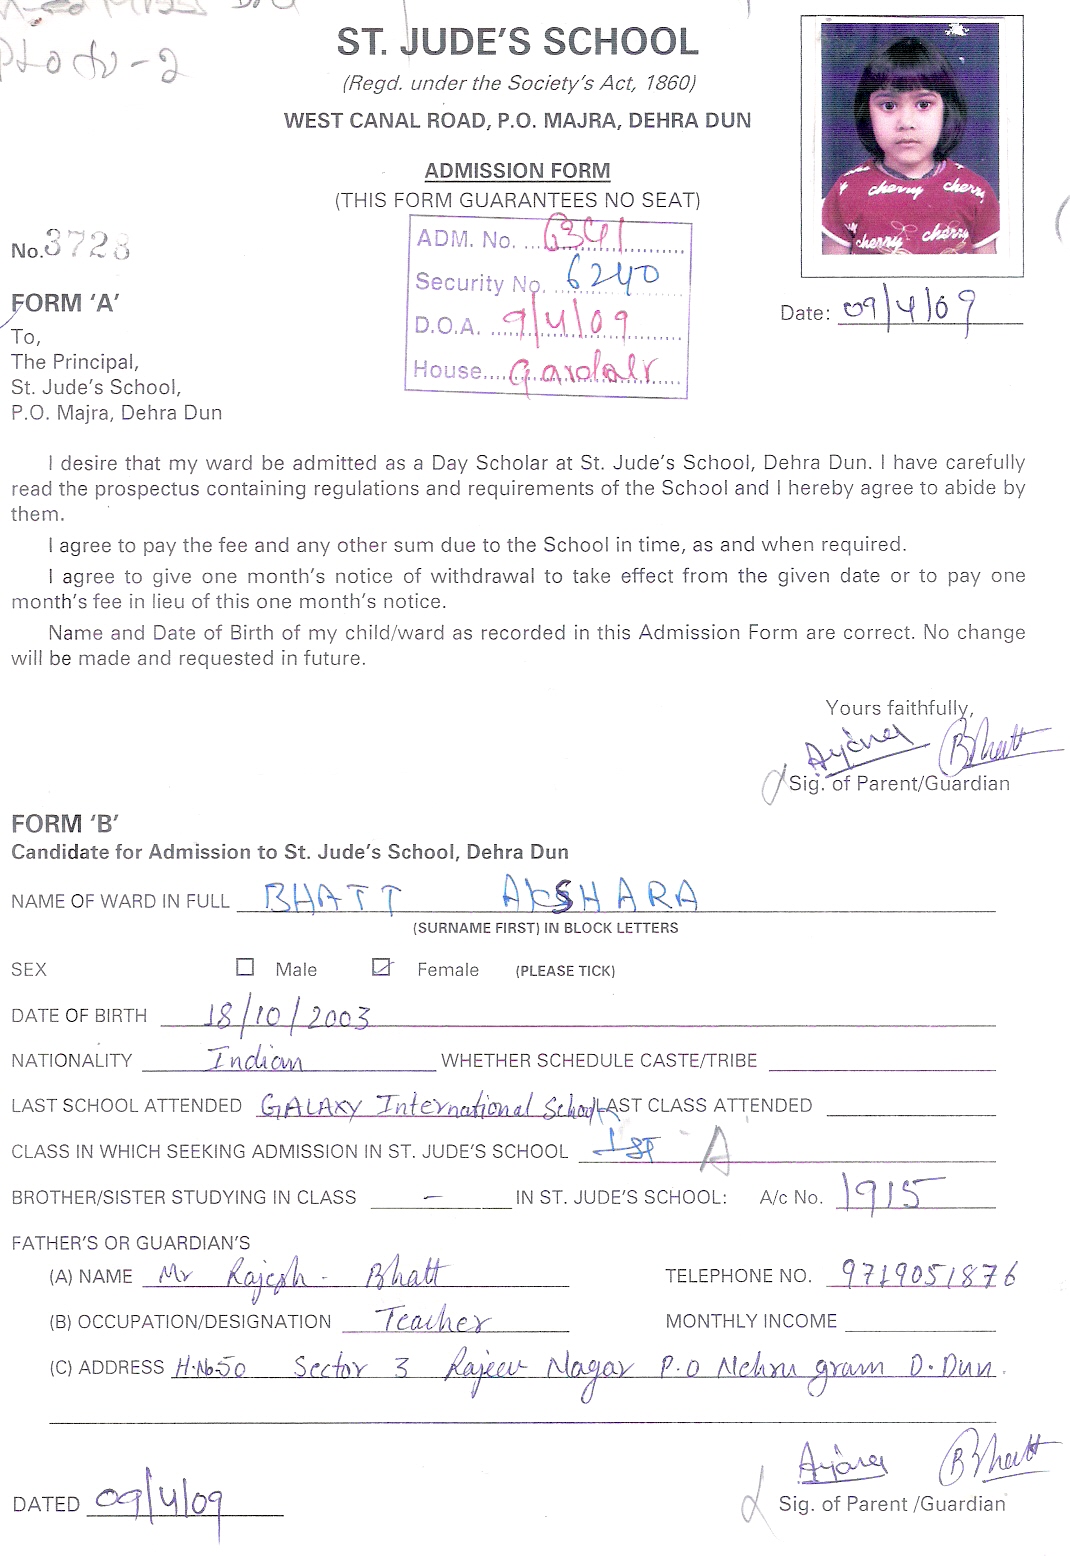 Photo - 2
ST. JUDE'S SCHOOL
(Regd. under the Society's Act, 1860)
WEST CANAL ROAD, P.O. MAJRA, DEHRA DUN
ADMISSION FORM
(THIS FORM GUARANTEES NO SEAT)
cherry cherry
cherry cherry
No. 3728
ADM. No. 6341
Security No. 6240
D.O.A. 9/4/09
House
Date: 09/4/09
FORM 'A'
To,
The Principal,
St. Jude's School,
P.O. Majra, Dehra Dun
I desire that my ward be admitted as a Day Scholar at St. Jude's School, Dehra Dun. I have carefully
read the prospectus containing regulations and requirements of the School and I hereby agree to abide by
them.
I agree to pay the fee and any other sum due to the School in time, as and when required.
I agree to give one month's notice of withdrawal to take effect from the given date or to pay one
month's fee in lieu of this one month's notice.
Name and Date of Birth of my child/ward as recorded in this Admission Form are correct. No change
will be made and requested in future.
Yours faithfully,
Bhatt
Sig. of Parent/Guardian
FORM 'B'
Candidate for Admission to St. Jude's School, Dehra Dun
NAME OF WARD IN FULL BHATT AKSHARA
(SURNAME FIRST) IN BLOCK LETTERS
SEX Male Female (PLEASE TICK)
DATE OF BIRTH 18/10/2003
NATIONALITY Indian WHETHER SCHEDULE CASTE/TRIBE
LAST SCHOOL ATTENDED GALAXY International School LAST CLASS ATTENDED
CLASS IN WHICH SEEKING ADMISSION IN ST. JUDE'S SCHOOL 1st - A
BROTHER/SISTER STUDYING IN CLASS - IN ST. JUDE'S SCHOOL: A/c No. 1915
FATHER'S OR GUARDIAN'S
(A) NAME Mr Rajesh Bhatt TELEPHONE NO. 9719051876
(B) OCCUPATION/DESIGNATION Teacher MONTHLY INCOME
(C) ADDRESS H.No50 Sector 3 Rajeev Nagar P.O Nehru gram D.Dun.
Bhatt
DATED 09/4/09 Sig. of Parent /Guardian